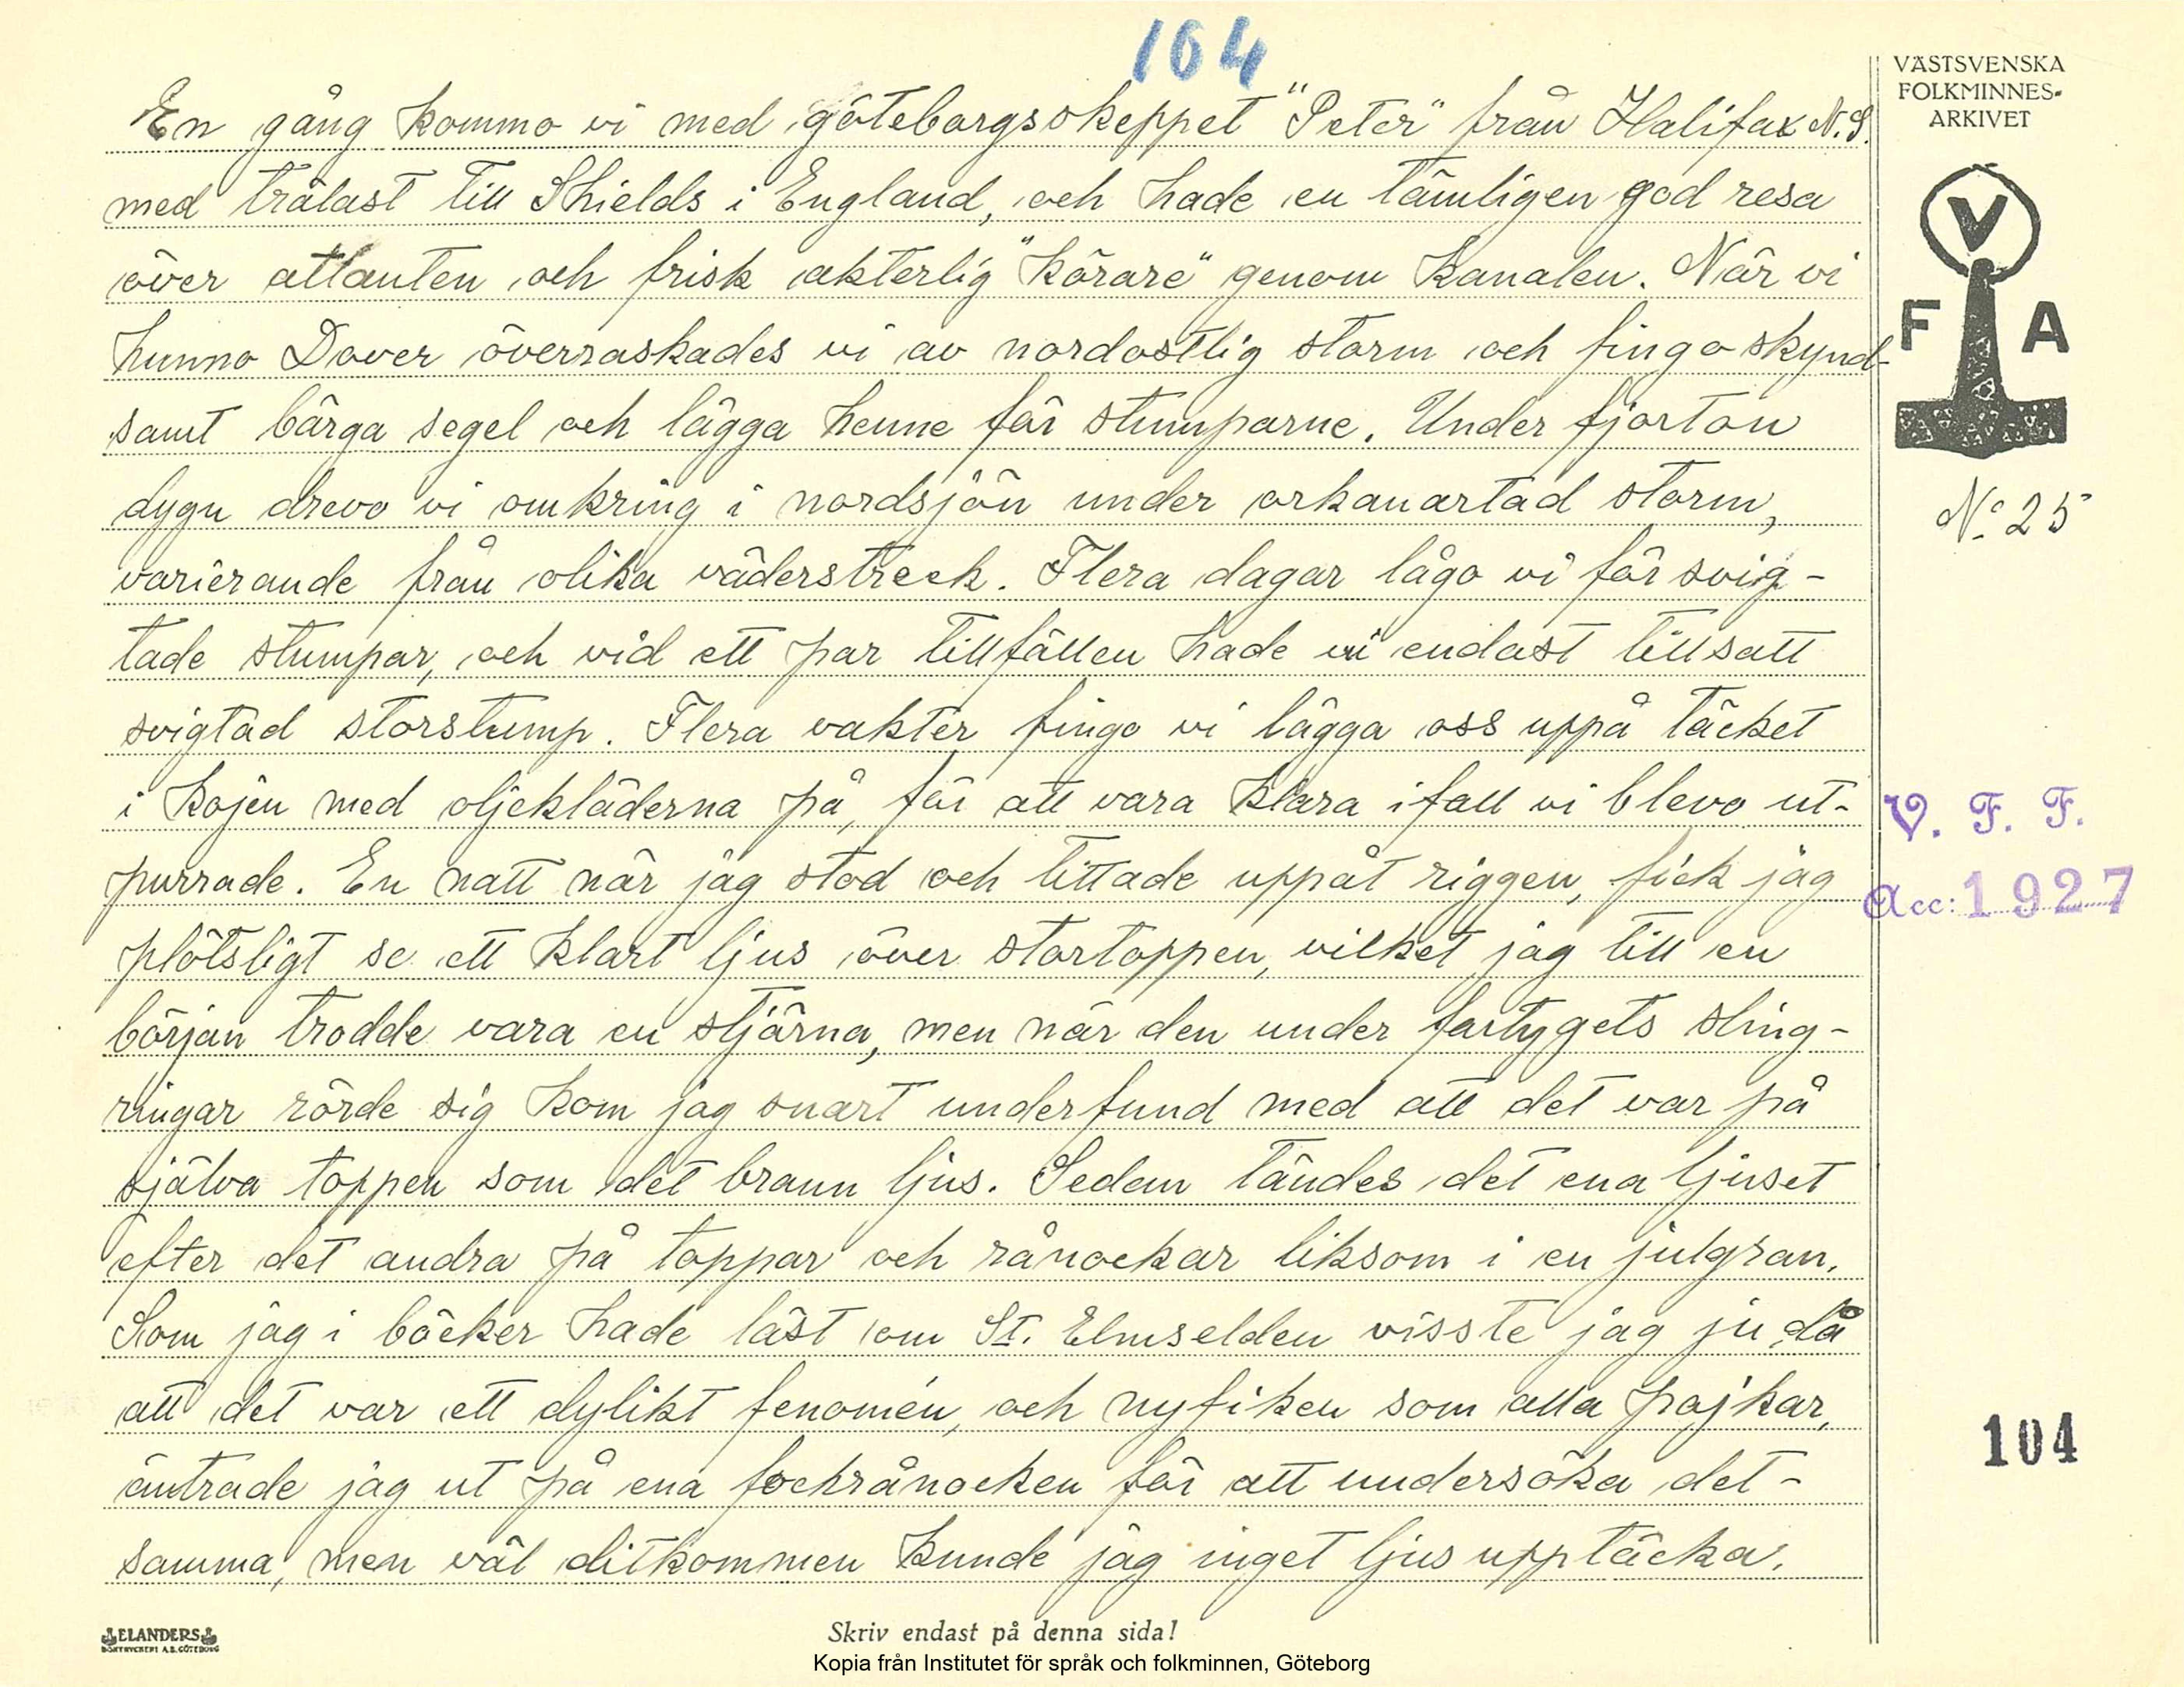 104
En gång kommo vi med götebargsskeppet "Peter" från Halifax N.S.
med trälast till Shields i England, och hade en tämligen god resa
över atlanten och frisk akterlig "körare" genom kanalen. När vi
hunno Dover överraskades vi av nordostlig storm och fingo skynd-
samt bärga segel och lägga henne för stumparne. Under fjorton
dygn drevo vi omkring i nordsjön under orkanartad storm,
varierande från olika väderstreck. Flera dagar lågo vi för svig-
tade stumpar, och vid ett par tillfällen hade vi endast tillsatt
svigtad storstump. Flera vakter fingo vi lägga oss uppå täcket
i kojen med oljekläderna på, för att vara klara ifall vi blevo ut-
purrade. En natt när jag stod och tittade uppåt riggen, fick jag
plötsligt se ett klart ljus över stortoppen, vilket jag till en
början trodde vara en stjärna, men när den under fartygets sling-
ringar rörde sig kom jag snart underfund med att det var på
själva toppen som det brann ljus. Sedan tändes det ena ljuset
efter det andra på toppar och rånockar liksom i en julgran.
Som jag i böcker hade läst om St. Elmselden visste jag ju då
att det var ett dylikt fenomén, och nyfiken som alla pojkar,
äntrade jag ut på ena fockrånocken för att undersöka det-
samma, men väl ditkommen kunde jag inget ljus upptäcka.
VÄSTSVENSKA
FOLKMINNES-
ARKIVET
V
F A
No 25
V. F. F.
Acc: 1927
104
ELANDERS
BOKTRYCKERI A.B. GÖTEBORG
Skriv endast på denna sida!
Kopia från Institutet för språk och folkminnen, Göteborg